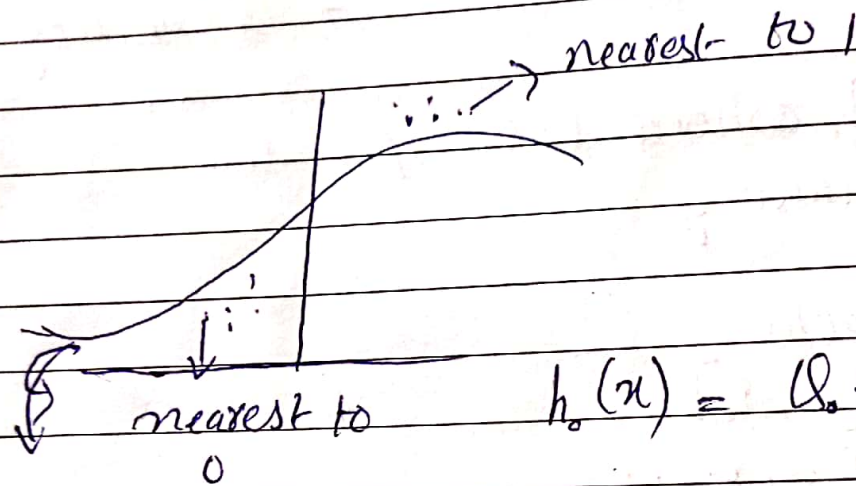 nearest to 1
nearest to
0
h₀(x) = θ₀